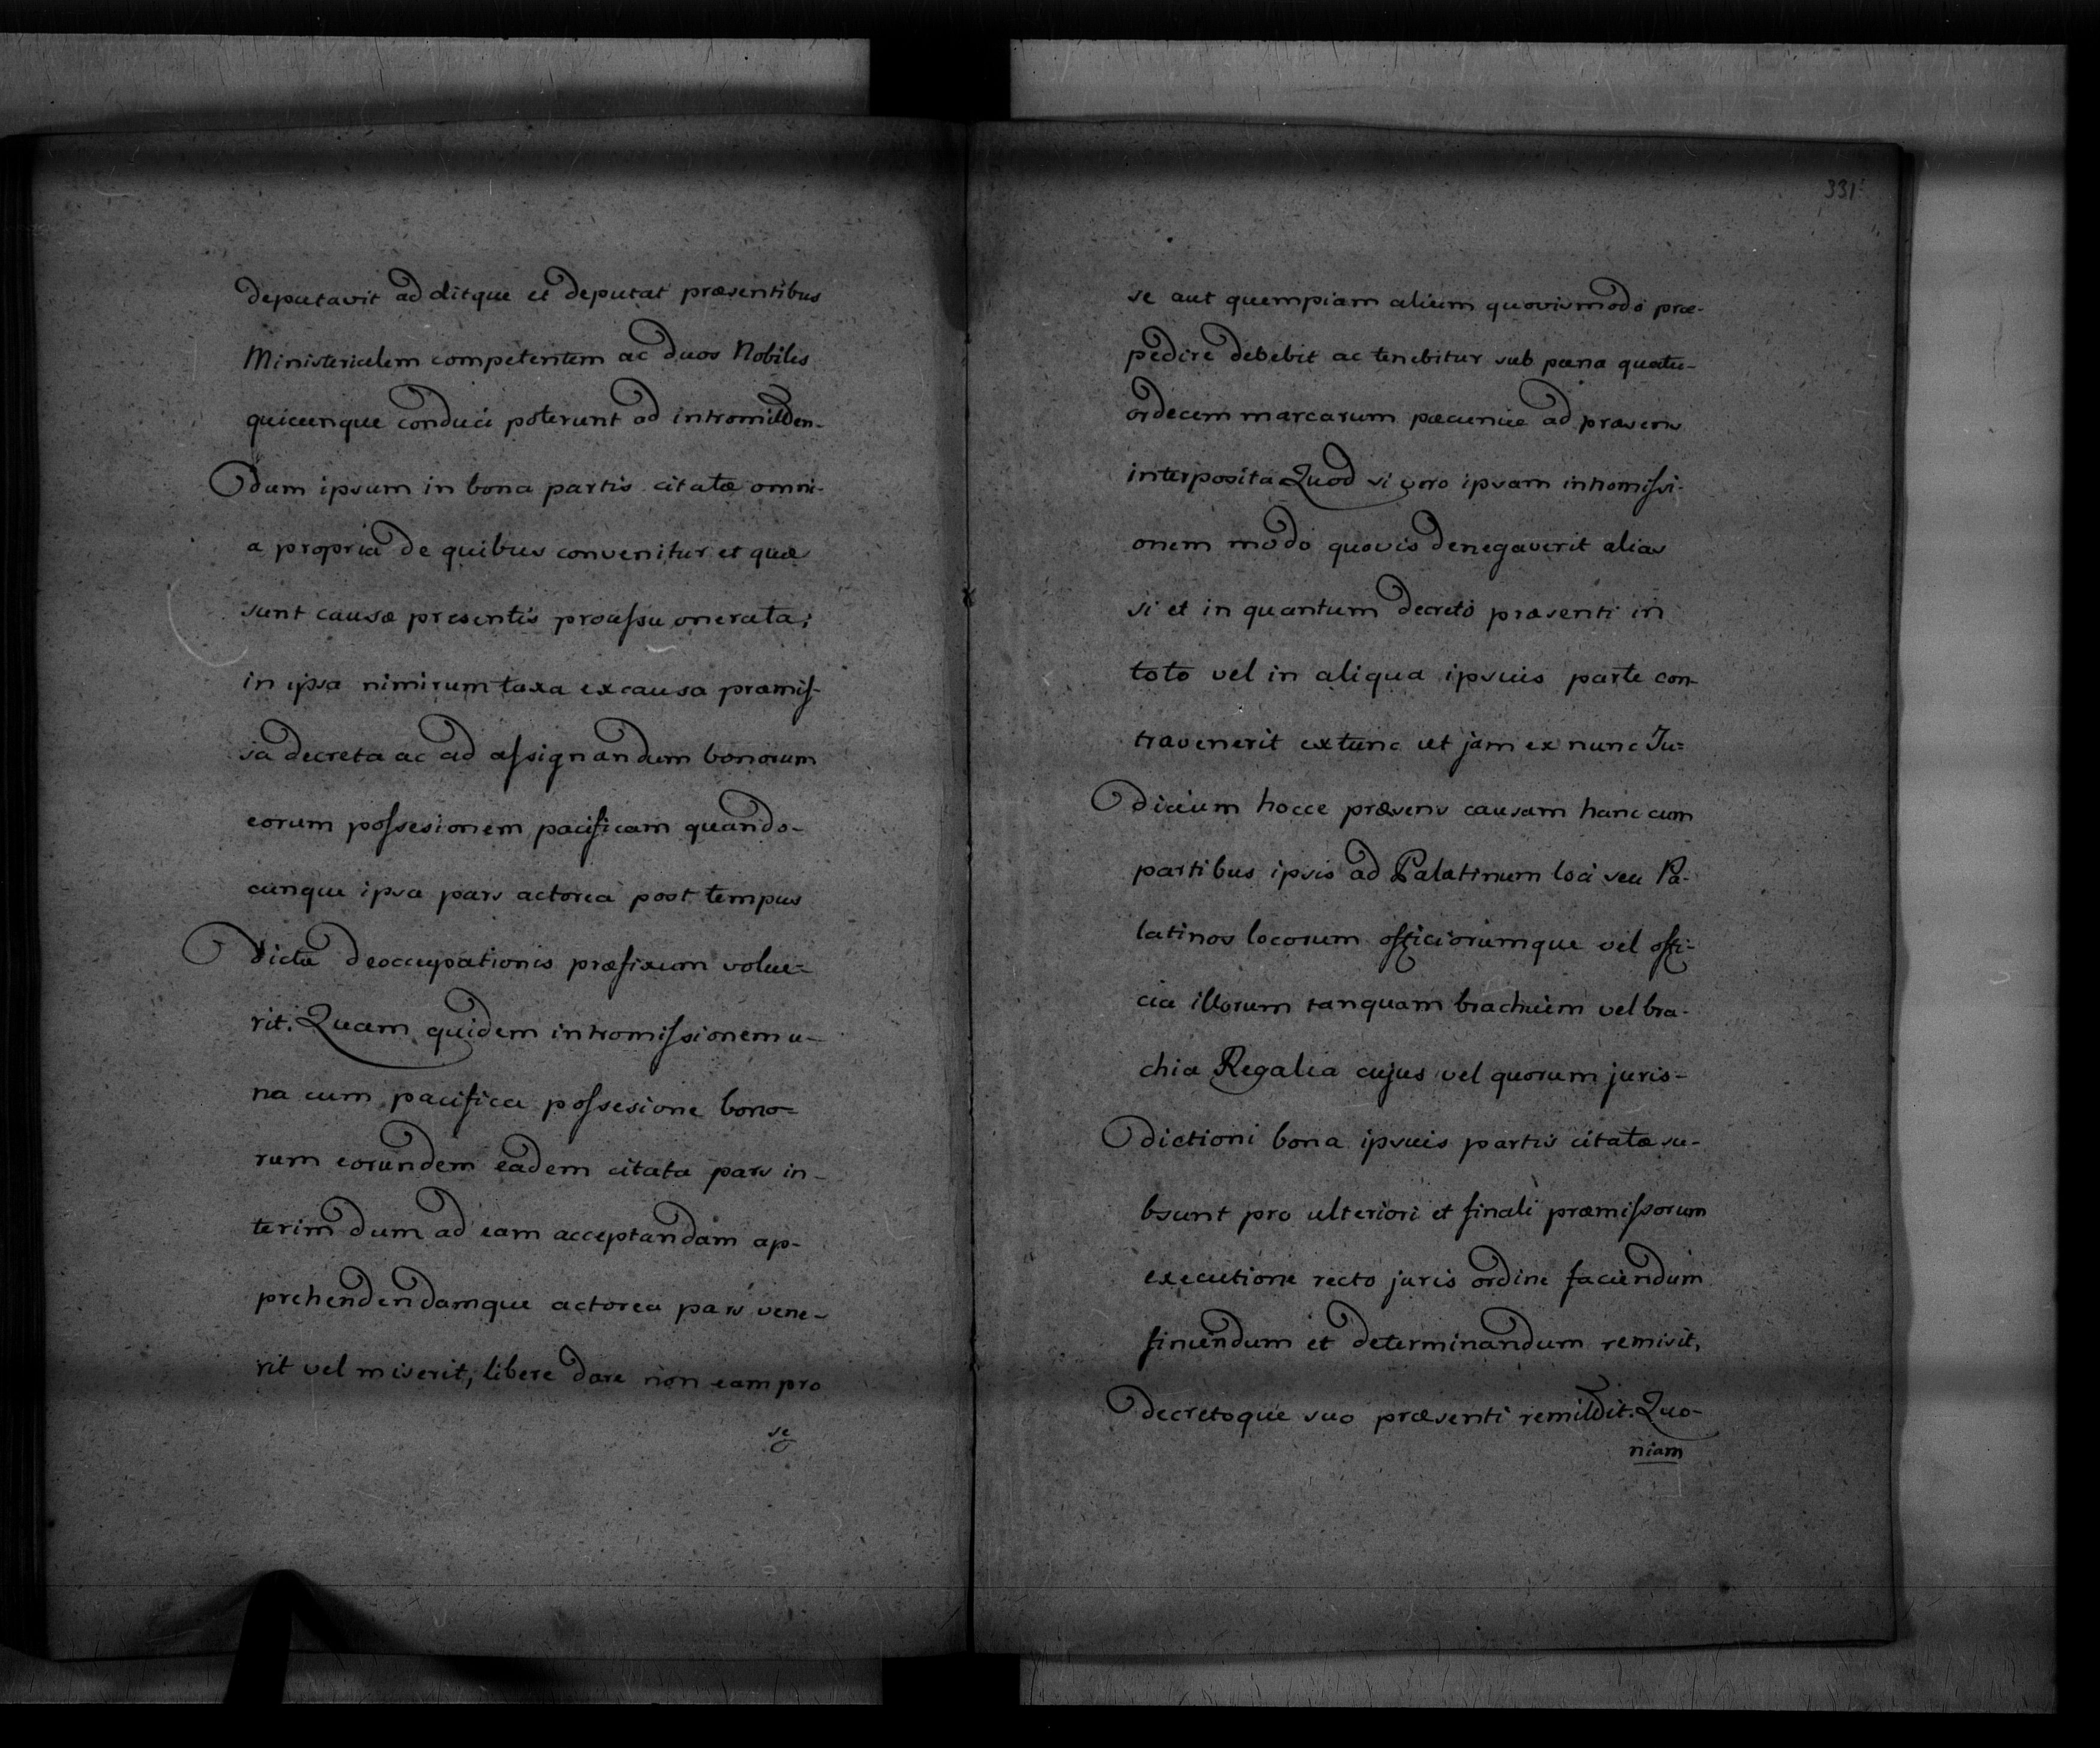 deputavit additque et deputat præsentibus
Ministerialem competentem ac duos Nobiles
quicunque conduci poterunt ad intromitten-
dum ipsum in bona partis citatæ omni-
a propria de quibus convenitur et quæ
sunt causæ presentis processu onerata;
in ipsa nimirum taxa ex causa præmis-
sa decreta ac ad assignandum bonorum
eorum possesionem pacificam quando-
cunque ipsa pars actorea post tempus
dictæ deoccupationis præfixum volue-
rit. Quam quidem intromissionem u-
na cum pacifica possesione bono-
rum eorundem eadem citata pars in-
terim dum ad eam acceptandam ap-
prehendendamque actorea pars vene-
rit vel miserit, libere dare non eam pro
se
331
se aut quempiam alium quovismodo præ-
pedire debebit ac tenebitur sub pæna quatu-
ordecem marcarum pæcuniæ ad præsens
interposita Quod si vero ipsam intromissi-
onem modo quovis denegaverit alias
si et in quantum decreto præsenti in
toto vel in aliqua ipsius parte con-
travenerit extunc ut jam ex nunc Ju-
dicium hocce præsens causam hanc cum
partibus ipsis ad Palatinum loci seu Pa-
latinos locorum officiorumque vel offi-
cia illorum tanquam brachium vel bra-
chia Regalia cujus vel quorum juris-
dictioni bona ipsius partis citatæ su-
bsunt pro ulteriori et finali præmissorum
executione recto juris ordine faciendum
finiendum et determinandum remisit,
decretoque suo præsenti remittit. Quo-
niam